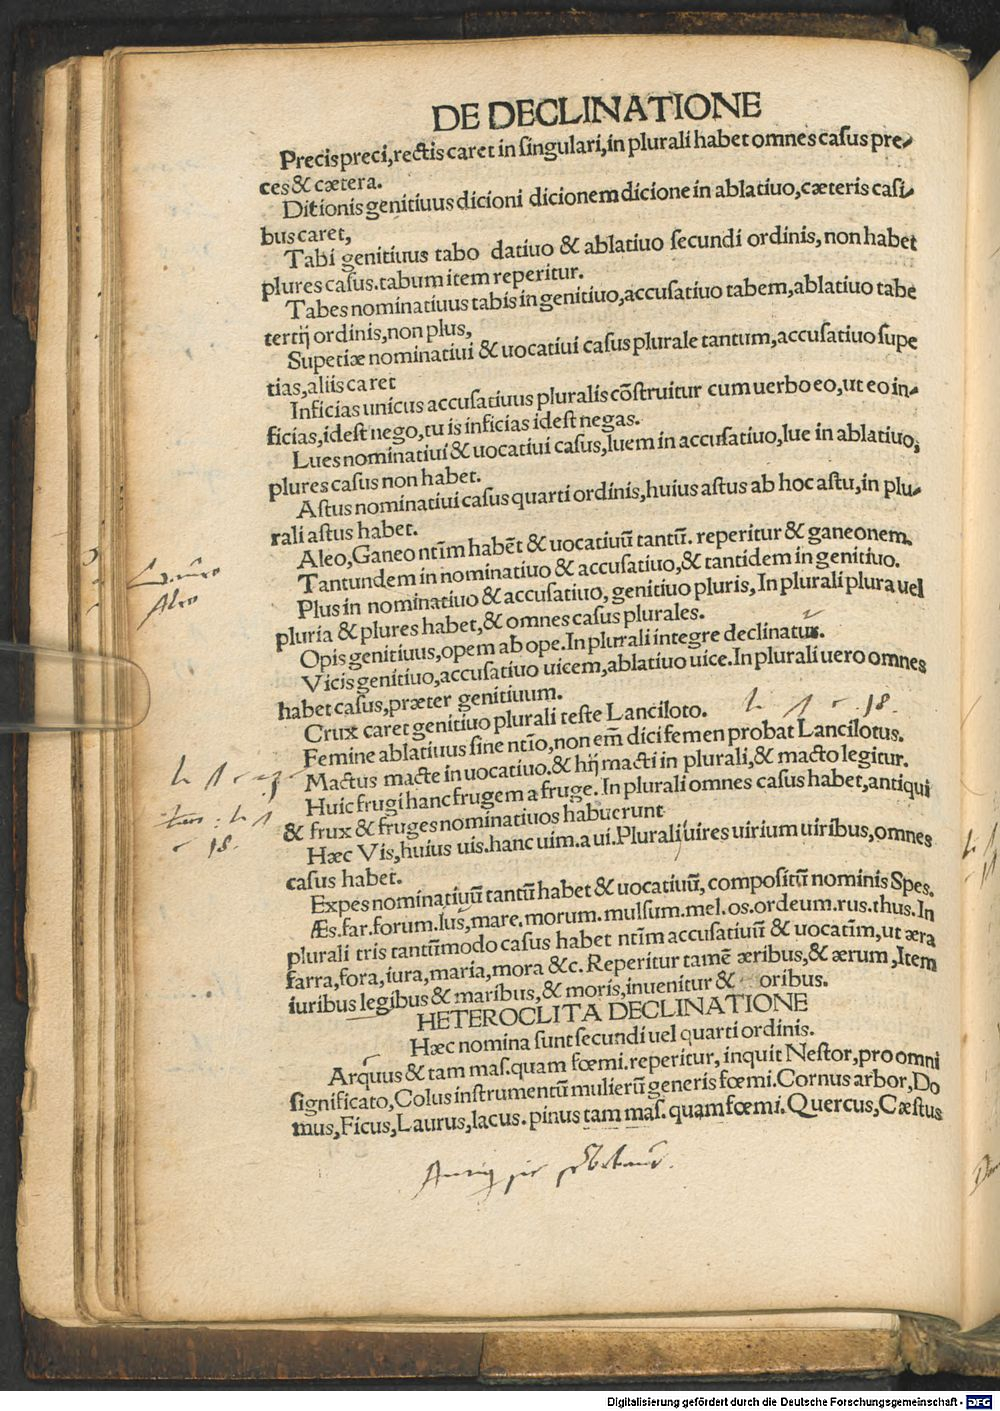 DE DECLINATIONE
Precis preci, rectis caret in singulari, in plurali habet omnes casus pre-
ces & cætera.
Ditionis genitiuus dicioni dicionem dicione in ablatiuo, cæteris casi-
bus caret,
Tabi genitiuus tabo datiuo & ablatiuo secundi ordinis, non habet
plures casus. tabum item reperitur.
Tabes nominatiuus tabis in genitiuo, accusatiuo tabem, ablatiuo tabe
tertij ordinis, non plus,
Supetiæ nominatiui & uocatiui casus plurale tantum, accusatiuo supe
tias, aliis caret
Inficias unicus accusatiuus pluralis cõstruitur cum uerbo eo, ut eo in-
ficias, idest nego, tu is inficias idest negas.
Lues nominatiui & uocatiui casus, luem in accusatiuo, lue in ablatiuo,
plures casus non habet.
Astus nominatiui casus quarti ordinis, huius astus ab hoc astu, in plu-
rali astus habet.
Aleo, Ganeo ntĩm habẽt & uocatiuũ tantũ. reperitur & ganeonem.
Tantundem in nominatiuo & accusatiuo, & tantidem in genitiuo.
Plus in nominatiuo & accusatiuo, genitiuo pluris, In plurali plura uel
pluria & plures habet, & omnes casus plurales.
Opis genitiuus, opem ab ope. In plurali integre declinatur.
Vicis genitiuo, accusatiuo uicem, ablatiuo uice. In plurali uero omnes
habet casus, præter genitiuum.
Crux caret genitiuo plurali teste Lanciloto. 18.
Femine ablatiuus sine ntĩo, non em̃ dici femen probat Lancilotus.
Mactus macte in uocatiuo. & hij macti in plurali, & macto legitur.
Huic frugi hanc frugem a fruge. In plurali omnes casus habet, antiqui
& frux & fruges nominatiuos habuerunt
Hæc Vis, huius uis. hanc uim. a ui. Plurali uires uirium uiribus, omnes
casus habet.
Expes nominatiuũ tantũ habet & uocatiuũ, compositũ nominis Spes.
Æs. far. forum. Ius, mare. morum. mulsum. mel. os. ordeum. rus. thus. In
plurali tris tantũmodo casus habet ntĩm accusatiuũ & uocatĩm, ut æra
farra, fora, iura, maria, mora &c. Reperitur tamẽ æribus, & ærum, Item
iuribus legibus & maribus, & moris, inuenitur & oribus.
HETEROCLITA DECLINATIONE
Hæc nomina sunt secundi uel quarti ordinis.
Arquus & tam mas. quam fœmi. reperitur, inquit Nestor, pro omni
significato, Colus instrumentũ mulierũ generis fœmi. Cornus arbor, Do
mus, Ficus, Laurus, lacus. pinus tam mas. quam fœmi. Quercus, Cæstus
Aleo
18.
Digitalisierung gefördert durch die Deutsche Forschungsgemeinschaft - DFG